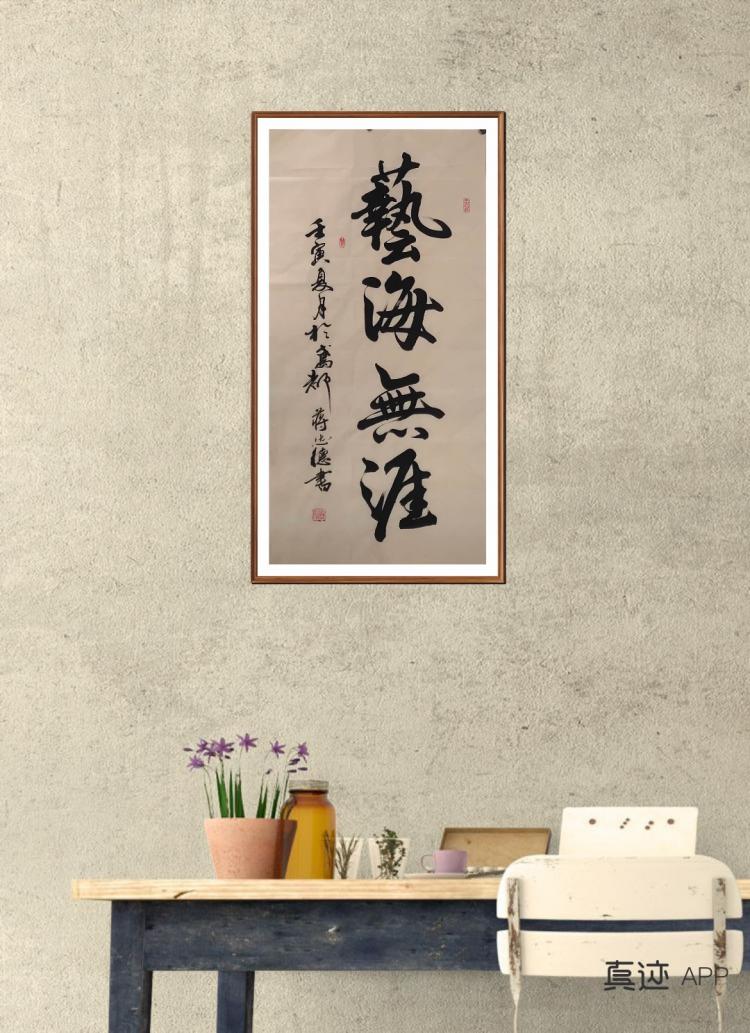 藝海無涯
壬寅夏月於禽都 蒋志德書
真迹 APP